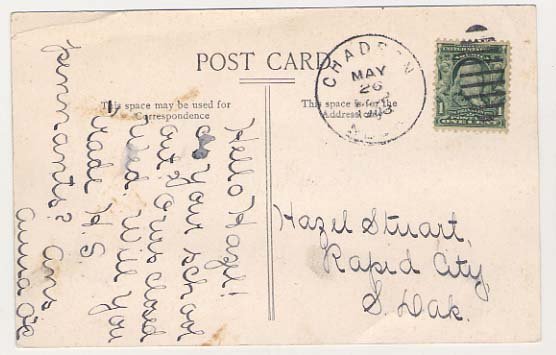 POST CARD
This space may be used for
Correspondence
This space is for the
Address only
CHADRON
MAY
26
UNITED STATES
1
1
ONE CENT
Hello Hazel!
Is your school
out? ours closed
Wed. Will you
trade H.S
pennants? Ans
Anna
Hazel Stuart,
Rapid City,
S. Dak.